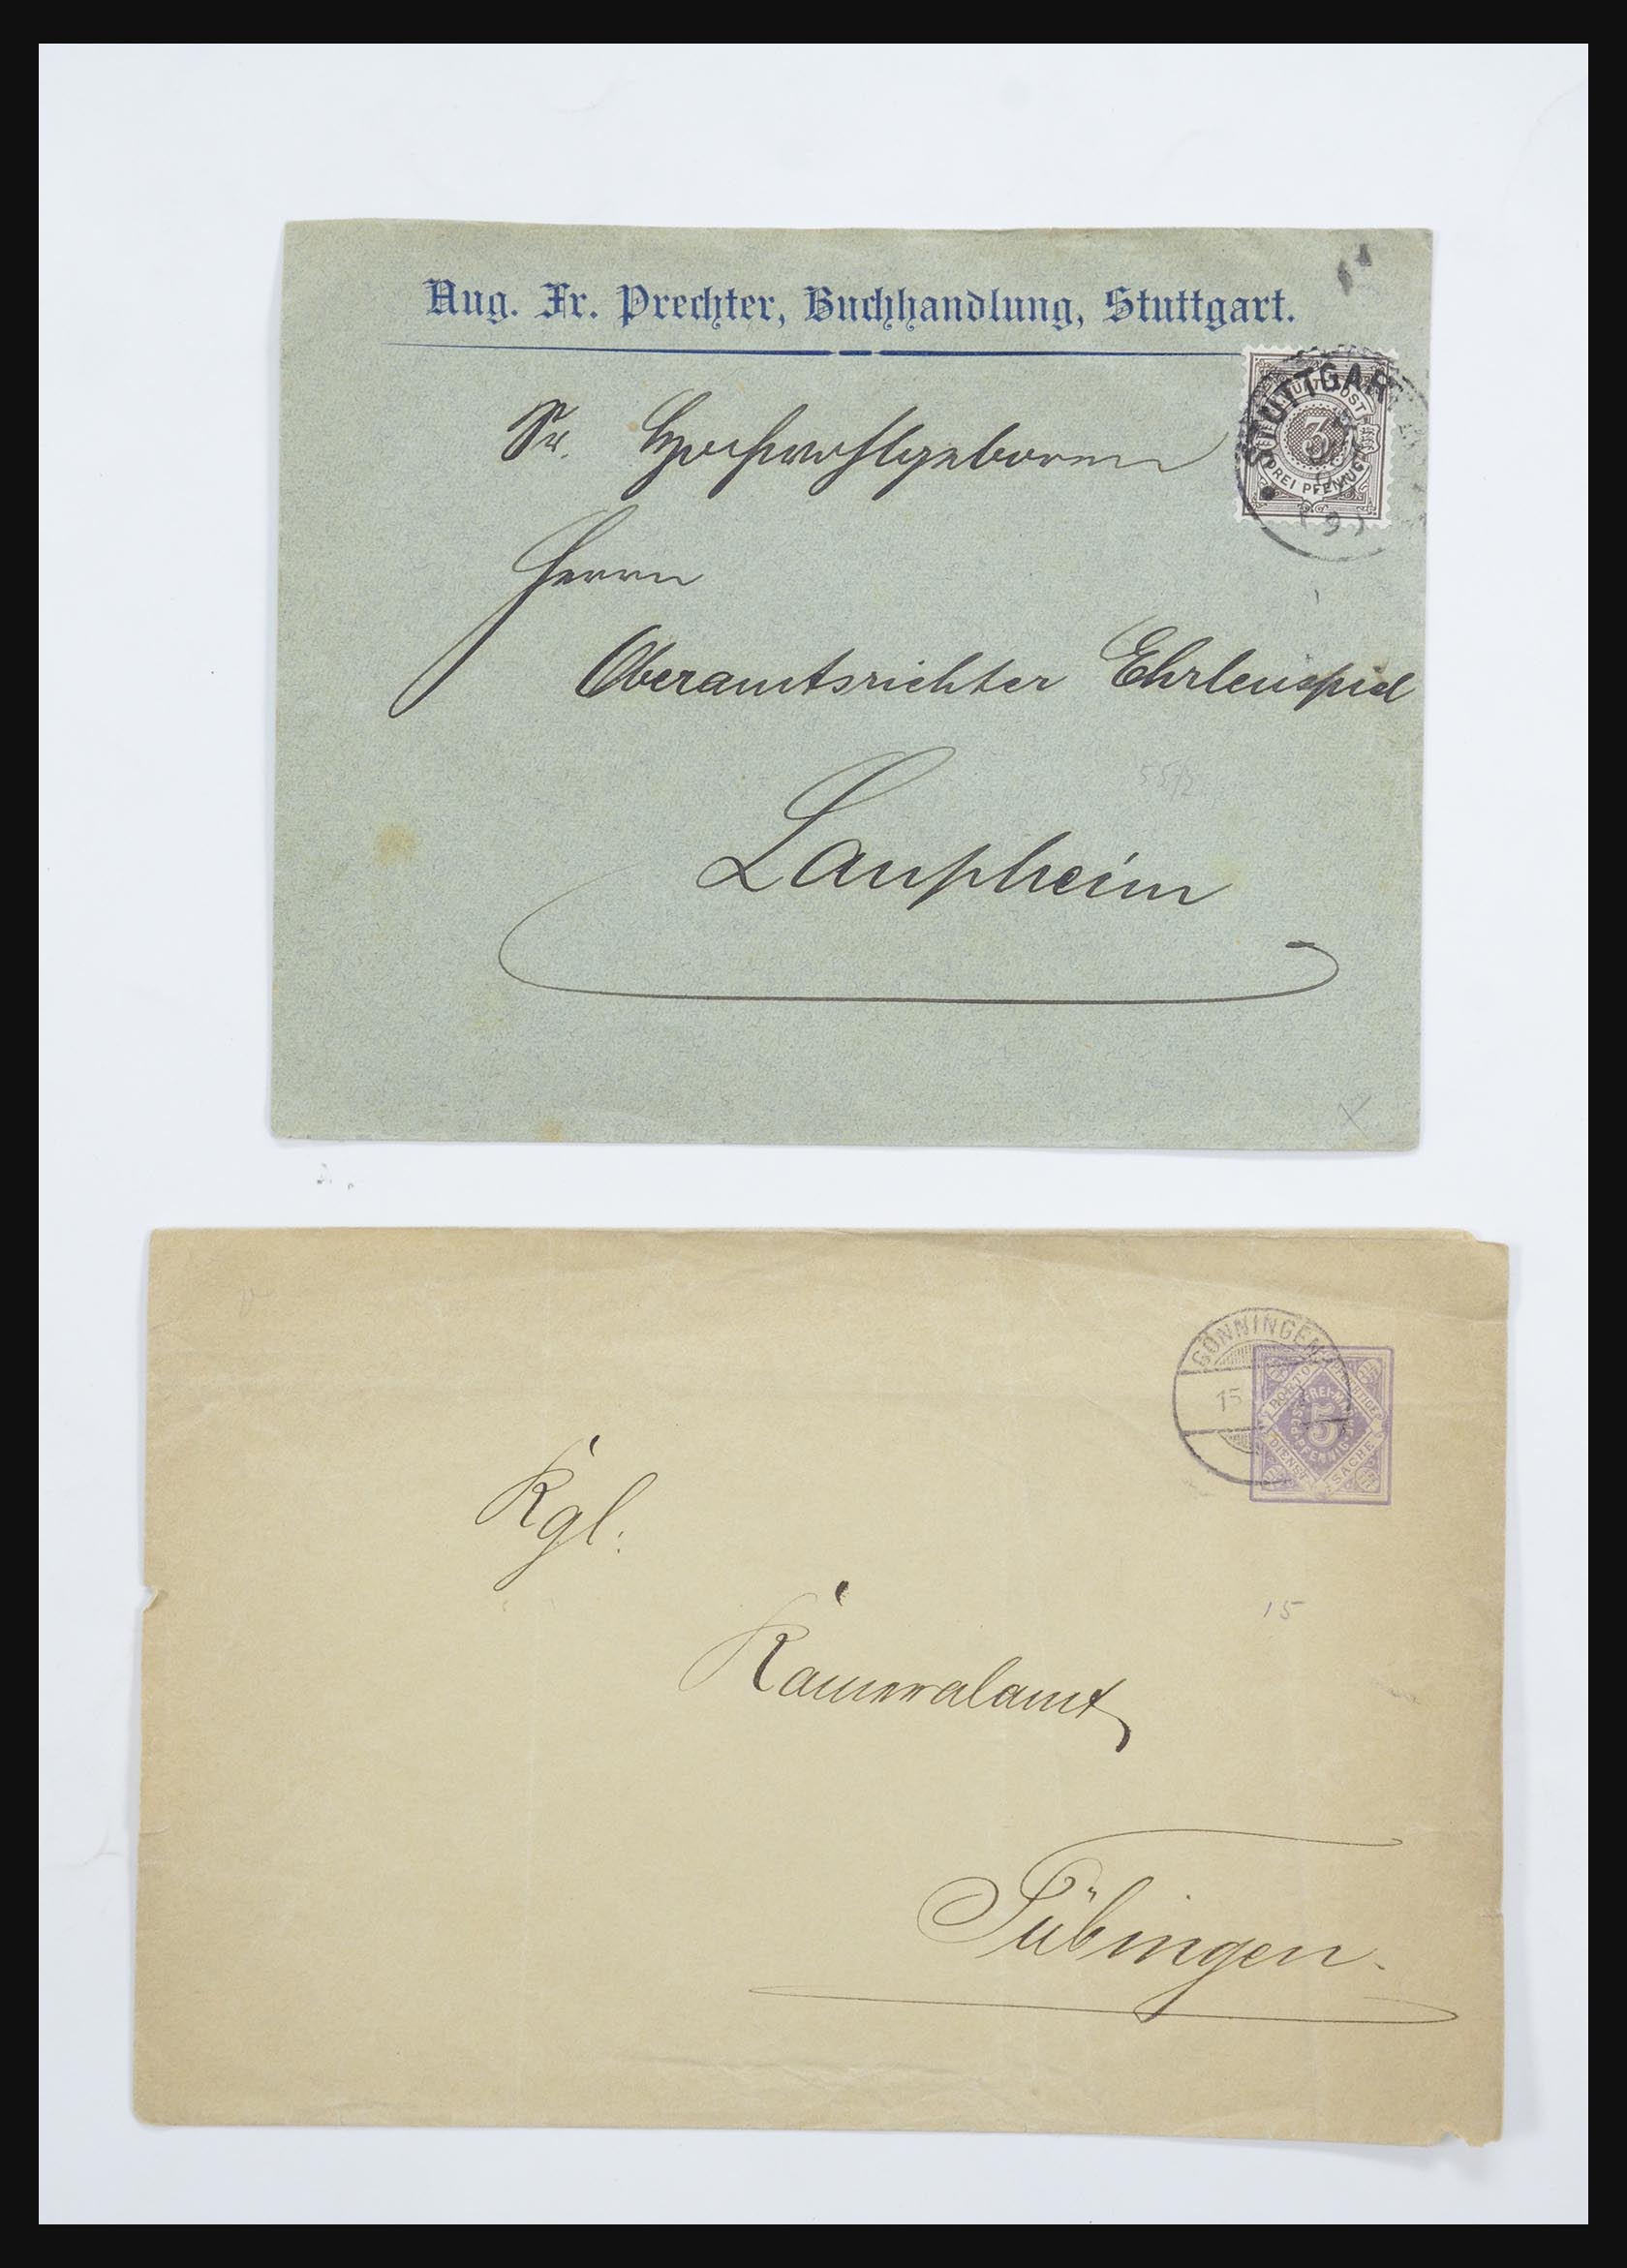 Aug. Fr. Prechter, Buchhandlung, Stuttgart.
STUTTGART
DREI PFENNIG
3
Sr. Hochwohlgeboren
Herrn
Oberamtsrichter Ehrlenspiel
55/2
Laupheim
GÖNNINGEN
15
PORTOPFLICHTIGE
DIENSTSACHE
5
PFENNIG
Kgl.
15
Kameralamt
Tübingen.